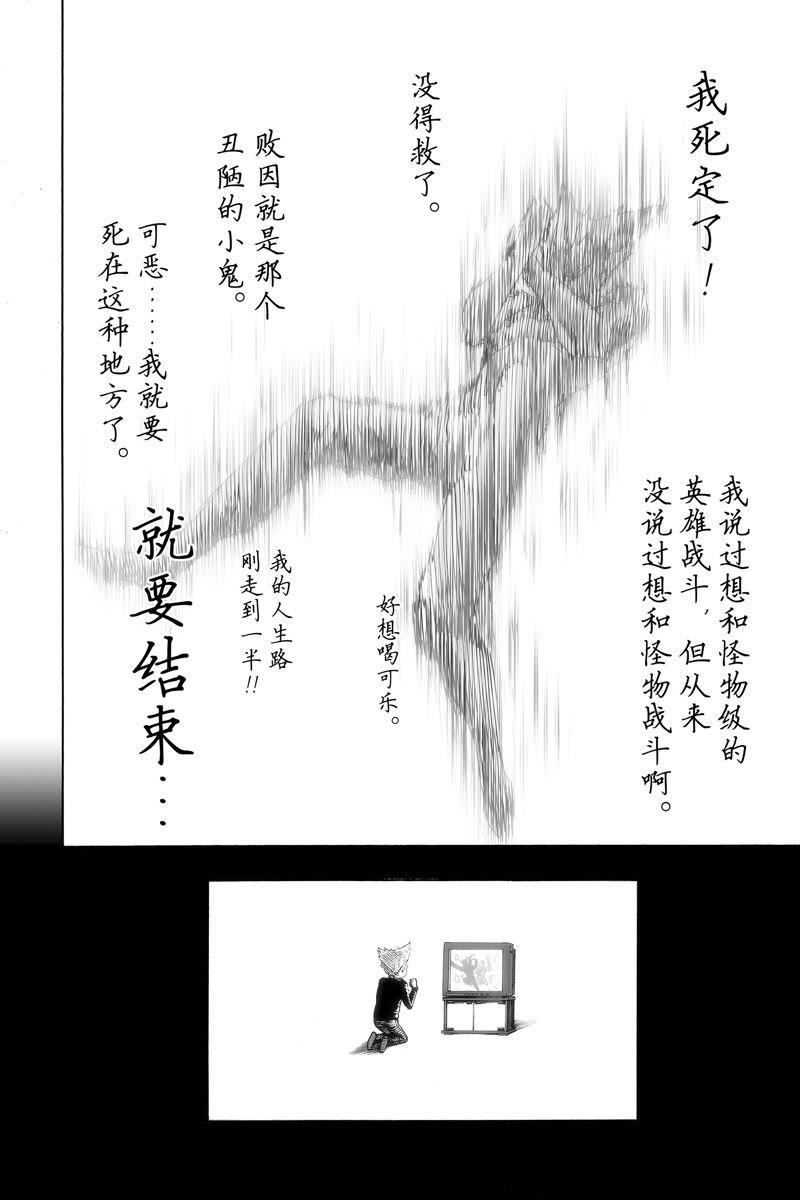 我死定了！
没得救了。
败因就是那个
丑陋的小鬼。
可恶……我就要
死在这种地方了。
我说过想和怪物级的
英雄战斗，但从来
没说过想和怪物战斗啊。
好想喝可乐。
我的人生路
刚走到一半!!
就要结束…